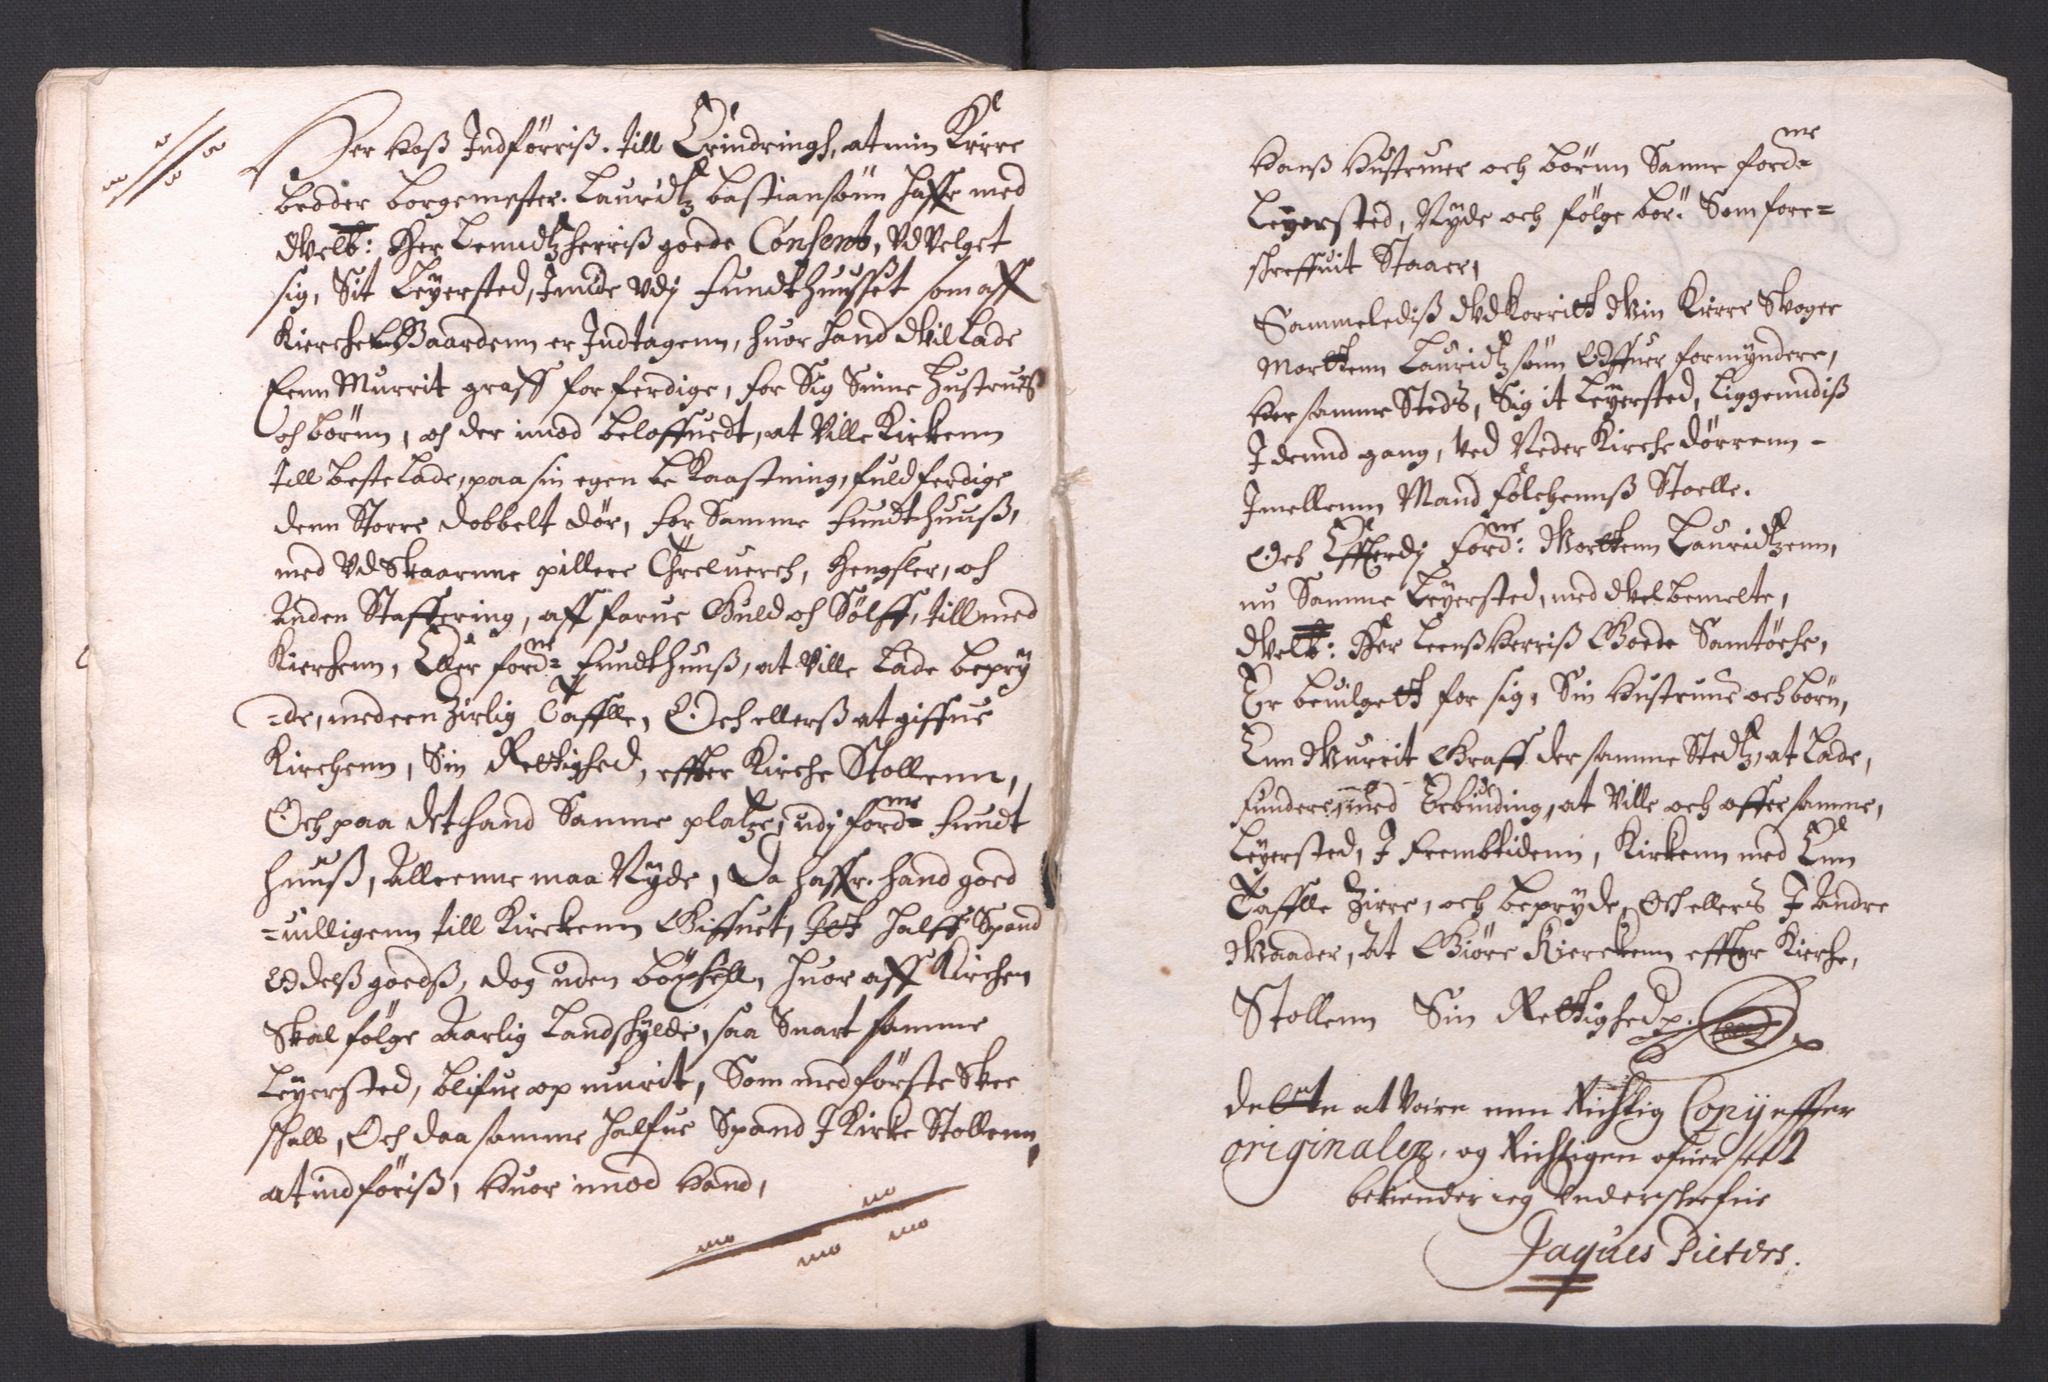 Her Hoß Indförriß. till Erindringh, at min Kiere
broder borgemester. Lauridtz bastiansönn haffr med
Welb: Her Lennidtzherriß goede Consent, Vdvelget
sig, Sit Leyersted, Inde Vdj Fundthuusset som aff
Kierche Gaardenn er Indtagenn, huor hand Wil Lade
Eenn Murrit graff forferdige, for Sig Sinne Hustruis
och börnn, och der imod beloffuedt, at Ville Kirkenn
till beste Lade, paa sin egen beKaastning, fuldferdige
denn Storre dobbelt dör, for Samme Fundthuuß,
med VdSkaarnne pillere Threluerch, Hengsler, och
Anden Staffering, aff farue Guld och Sölff, till med
Kierkenn, Eller fordne Fundthuuß, at Ville Lade bepry
=de, med een Zirlig Taffle, Och ellerß at giffue
Kirchenn, Sin Rettighed, effter Kirche Stollenn,
Och paa det hand Samme platze, udj fordne Fundt
huuß, Alleenne maa Nyde, Da haffr. hand goed
=uilligenn till Kirckenn Giffuet, Jtt halff Spand
Odelßgoedß, dog uden böxsell, huor aff Kirchen
Skal følge Aarlig Landskylde, saa Snart samme
Leyersted, blifue op murit, Som med förste Skee
shall, Och daa samme halfue Spand J Kirke Stollenn,
at indföriß, Huor imod Hand,
Hanß Hustruer och börnn Samme fordne=
Leyersted, Nyde och følge bör. Som fore=
schreffuit Staaer,
Sammelediß Vdkorrith Min Kiere Svoger
Mortenn Lauridtzsönn Offuer formyndere,
Her samme Steds, Sig it Leyersted, Liggendiß
J dennd gang, ved Neder Kirche dörrenn -
Jmellenn Mand folchennß Stoelle.
Och Effterdj fordne: Mortenn Lauridtzenn,
nu Samme Leyersted, med Velbemelte,
Welb: Her LeenßHerriß Goede Samtöche,
Er beuilgett for sig, Sin Hustrue och börn,
Enn Murrit Graff der samme Stedtz, at Lade,
fundere, med Erbiuding, at Ville och offer samme,
Leyersted, J Frembtidenn, Kirkenn med Enn
Taffle Zirre, och bepryde, Och ellers J Andre
Maader, At Giöre Kierckenn effter Kirche,
Stollenn Sin Rettighed p.
dette at Voire enn Richtig Copij effter
originalen. og Richtigen ofuersett
bekiender ieg Vnderschrefne
Jaques Pieters.